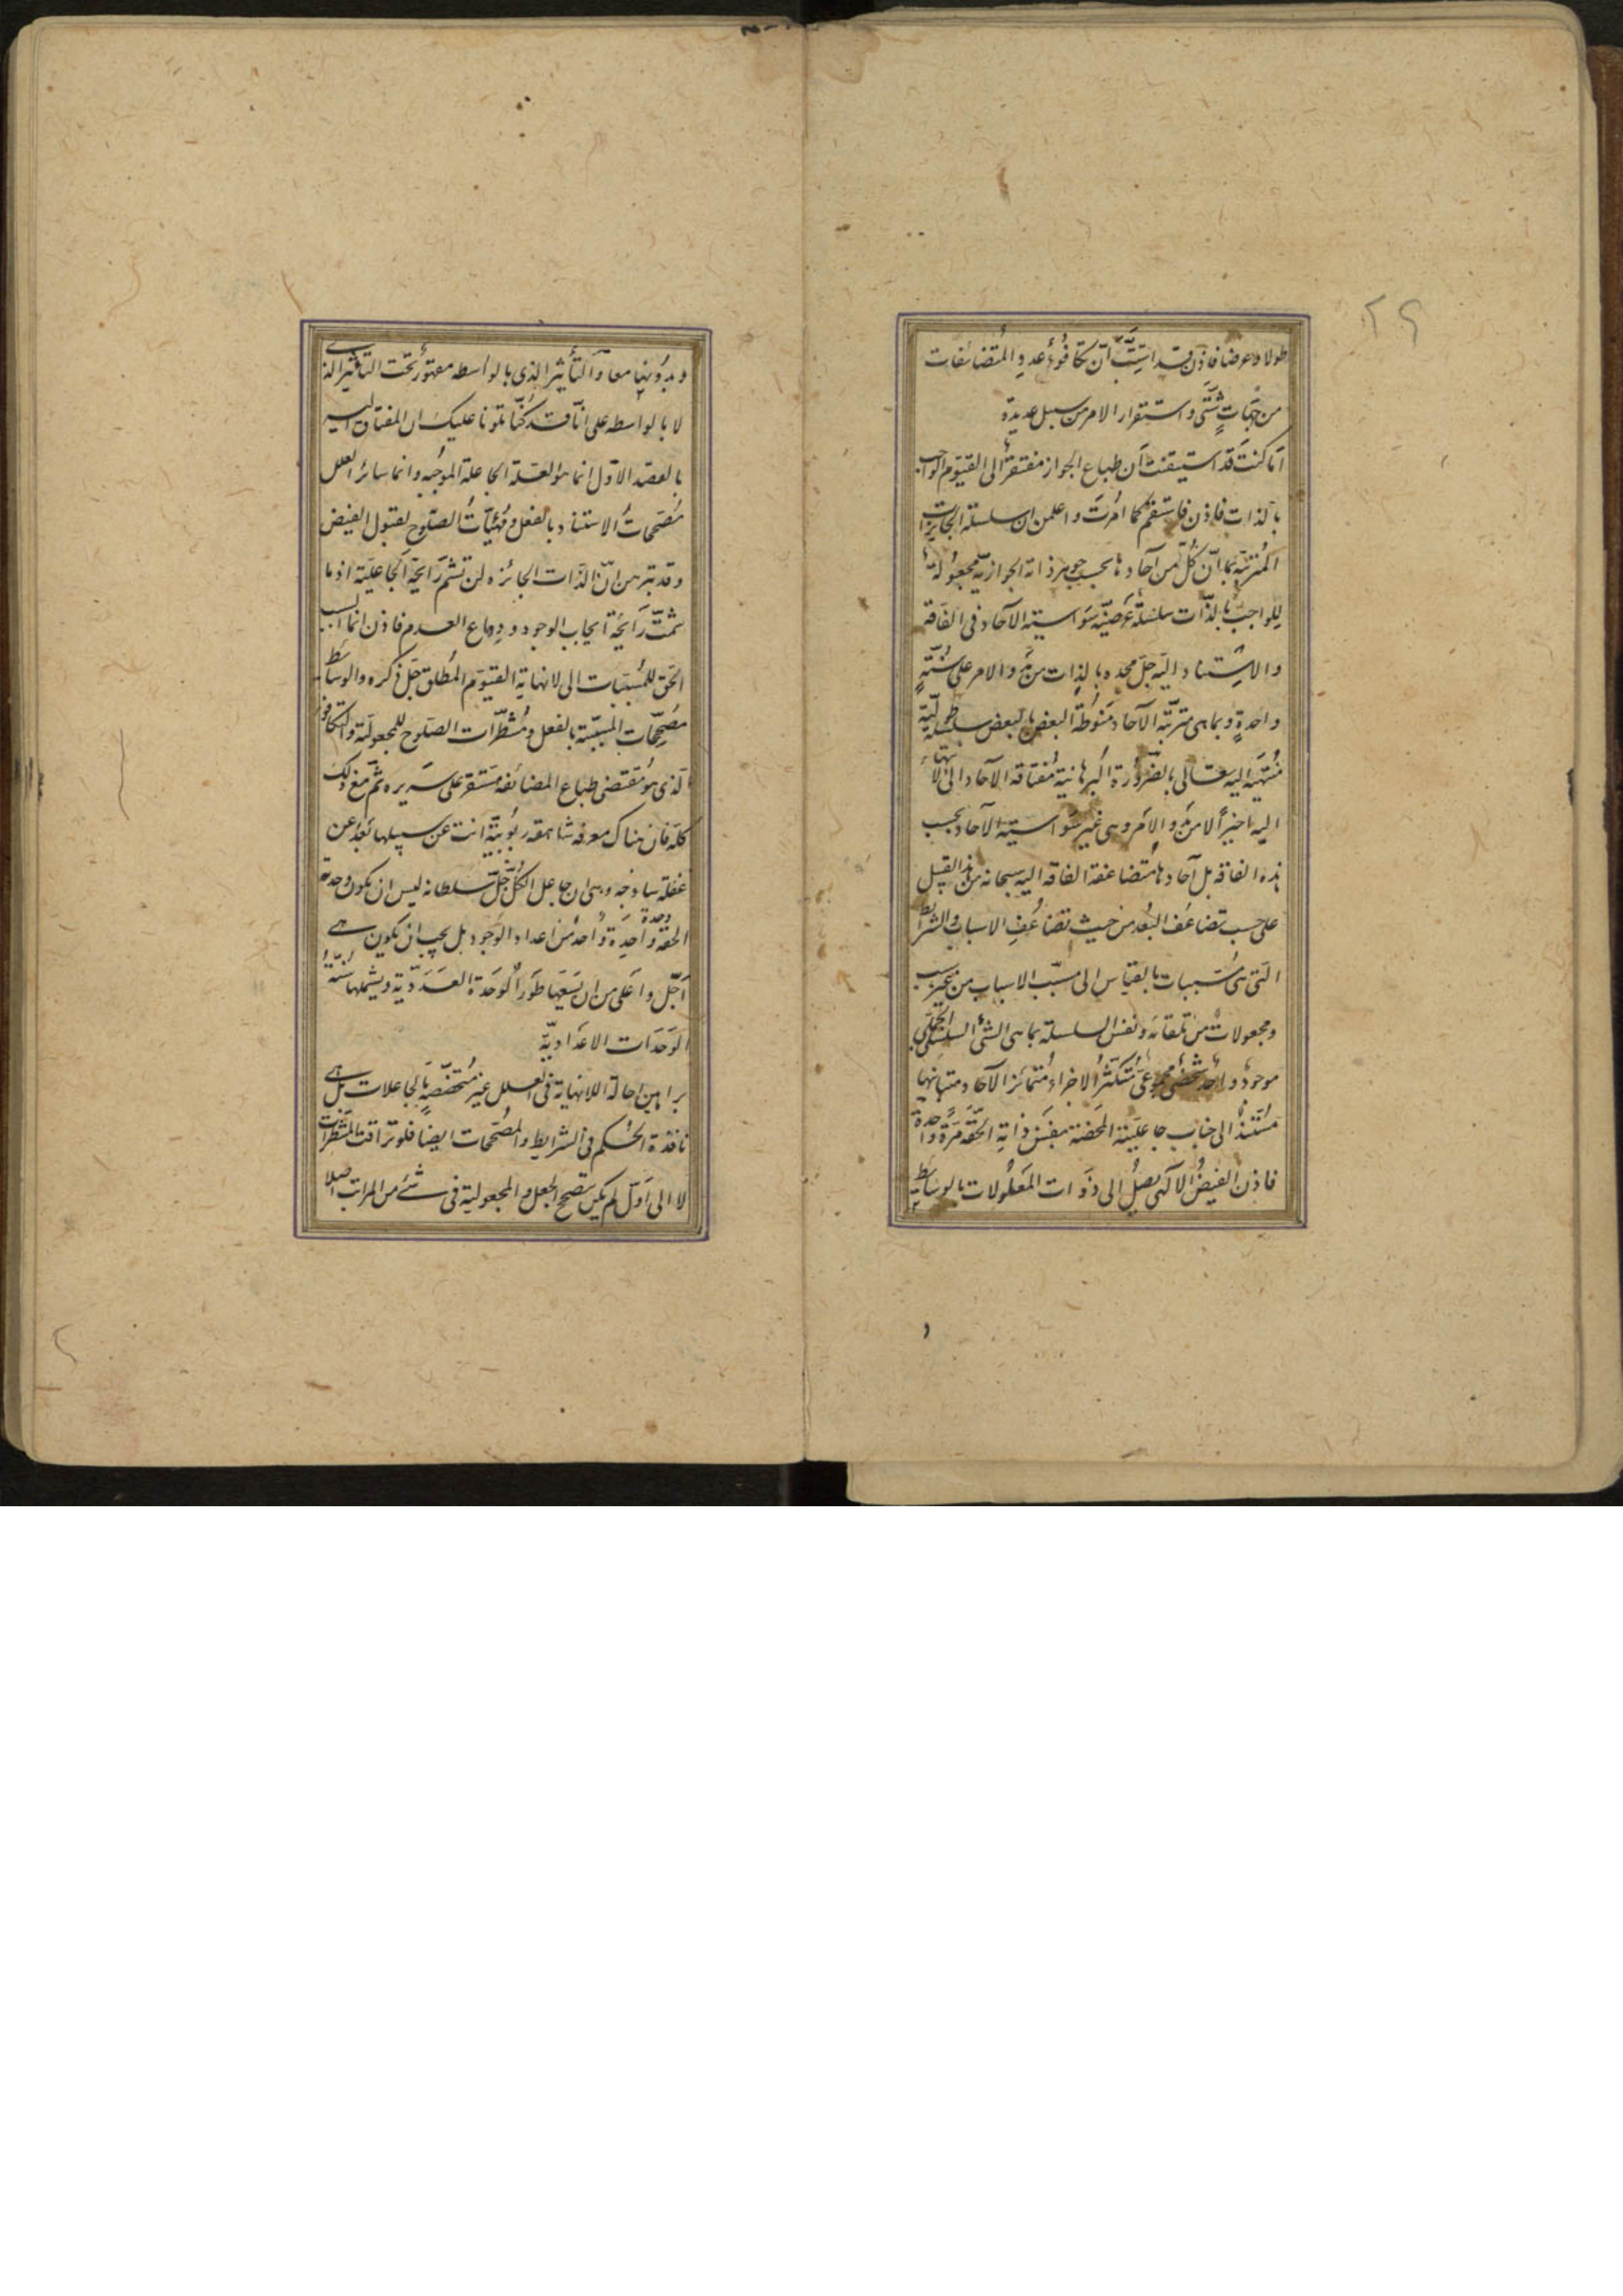 ٢٩
طولا وعرضا فاذن قد استتبّ أن تكافؤ عدد المتضائفات
من جهات شتّى واستقرار الامر من سبل عديدة
أما كنت قد استيقنت أن طباع الجواز مفتقر الى القيوم الواجب
بالذات فاذن فاستقم كما امرت واعلمن ان سلسلة الجايزات
المترتبة بما انّ كلّ من آحادها بحسب جوهر ذاته الجوازية مجعولة
للواجب بالذّات سلسلة عرضيّة سواسية الآحاد فى الفاقة
والاستناد اليه جل مجده بالذات من بدو الامر على سُنّةٍ
واحدةٍ وبما هى مترتّبة الآحاد منوطة البعض بالبعض سلسلة طوليّة
منتهية اليه تعالى بالضرورة البرهانية مفتاقة الآحاد الى الانتهاء
اليه اخيرا لا من بدو الامر وهى غير سواسية الآحاد بحسب
هذه الفاقة بل آحادها متضاعفة الفاقة اليه سبحانه من هذا القبيل
على حسب تضاعف البُعد من حيث تضاعُفِ الاسباب والشرائط
الّتى هى مُسَبّبات بالقياس الى مسبّب الاسباب من غير سبب
ومجعولات من تلقائه ونفس السلسلة بما هى الشئ السلسلى الجملى
موجود واحد شخصى مجموعى متكثر الاجزاء متمائز الآحاد ومتباينها
مستند الى جناب جاعليته المحضة بنفس ذاته الحقّة مرّة واحدة
فاذن الفيض الالهى يصل الى ذوات المعلولات بالوسائط
وبدونها معا والتأثير الذى بالواسطه مقهور تحت التاثير الذى
لا بالواسطه على انّا قد كنّا تلونا عليك ان المفتاق اليه
بالقصد الاوّل انما هو العلة الجاعلة الموجبه وانما سائر العلل
مُصَحّحات الاستناد بالفعل ومهيّات الصّلوح لقبول الفيض
وقد تبرهن انّ الذّات الجائزه لن تشمّ رايحة الجاعليّة اذ ما
شمّت رائحة ايجاب الوجود ودفاع العدم فاذن انما السبب
الحق للمُسَبّبات الى لا نهاية القيّوم المُطلق جَلّ ذكره والوسائط
مصحّحات المسبّبيّة بالفعل ومُشطّرات الصلوح للمجعوليّة والتكافؤ
الذى هو مقتضى طباع المضائفه مستقر على سريره ثمّ مع ذلك
كله فان هناك معرفه شاهقه ربوبيّة انت عن سبيلها بَعْدُ عن
غفلة ساذجه وهى ان جاعل الكل جلّ سلطانه ليس ان يكون وحدته
الحقّه واحدة وحدة من اعداد الوجود بل يجب ان يكون هى
اجلّ واعلى من ان يسعها طورُ الوحدة العدديّة ويشملها سنّة
الوحدات الاعداديّة
براهين احالة اللانهاية فى العلل غير مُتخصّصةٍ بالجاعلات بل هى
نافذة الحكم فى الشرايط والمصحّحات ايضا فلو تراقت المشطرات
لا الى اوّل لم يكن يتصحح الجعل والمجعولية فى شئ من المراتب اصلا